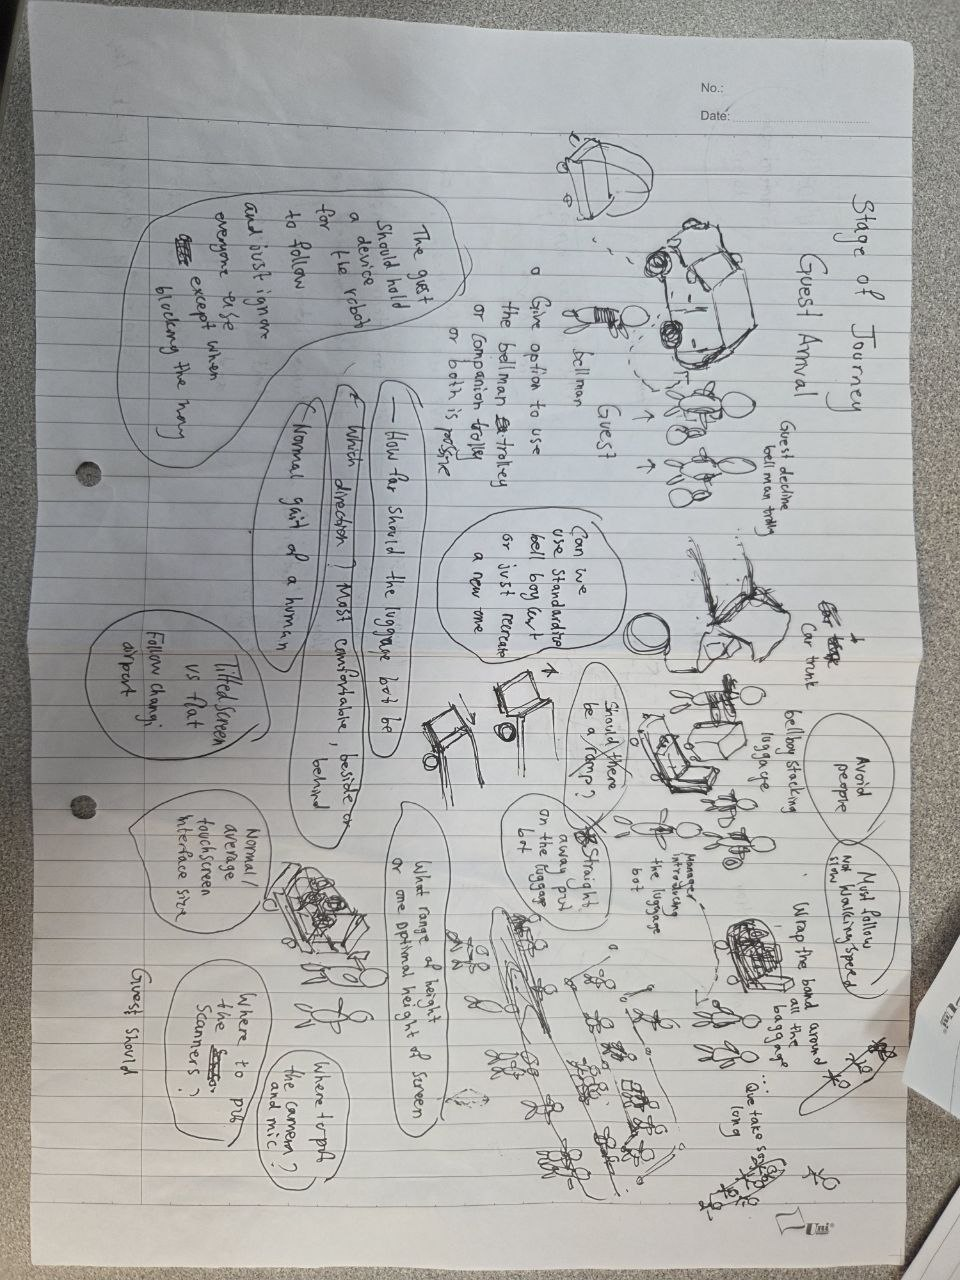 No.:
Date:
Stage of Journey
Guest Arrival
Guest decline
bellman trolly
Car trunk
bellboy stacking
luggage
Avoid
people
Must follow
Not Walking speed
slow
Wrap the band around
all the
baggage
... Que take so
long
Uni
Manager
introducing
the luggage
bot
Guest
bellman
Give option to use
the bellman trolley
or companion trolly
or both is
Can we
use standardize
bell boy cart
or just recreate
a new one
Should there
be a ramp?
Straight
away put
on the luggage
bot
The guest
should hold
a device
for the robot
to follow
and just ignore
everyone else
except when
blocking the way
How far should the luggage bot be
which direction? Most comfortable, beside or
behind
Normal gait of a human
What range of height
or one optimal height of screen
Tilted screen
vs flat
Follow changi
airport
Normal/
average
touchscreen
interface size
Where to put
the camera?
and mic?
Where to put
the
scanners?
Guest should
Uni